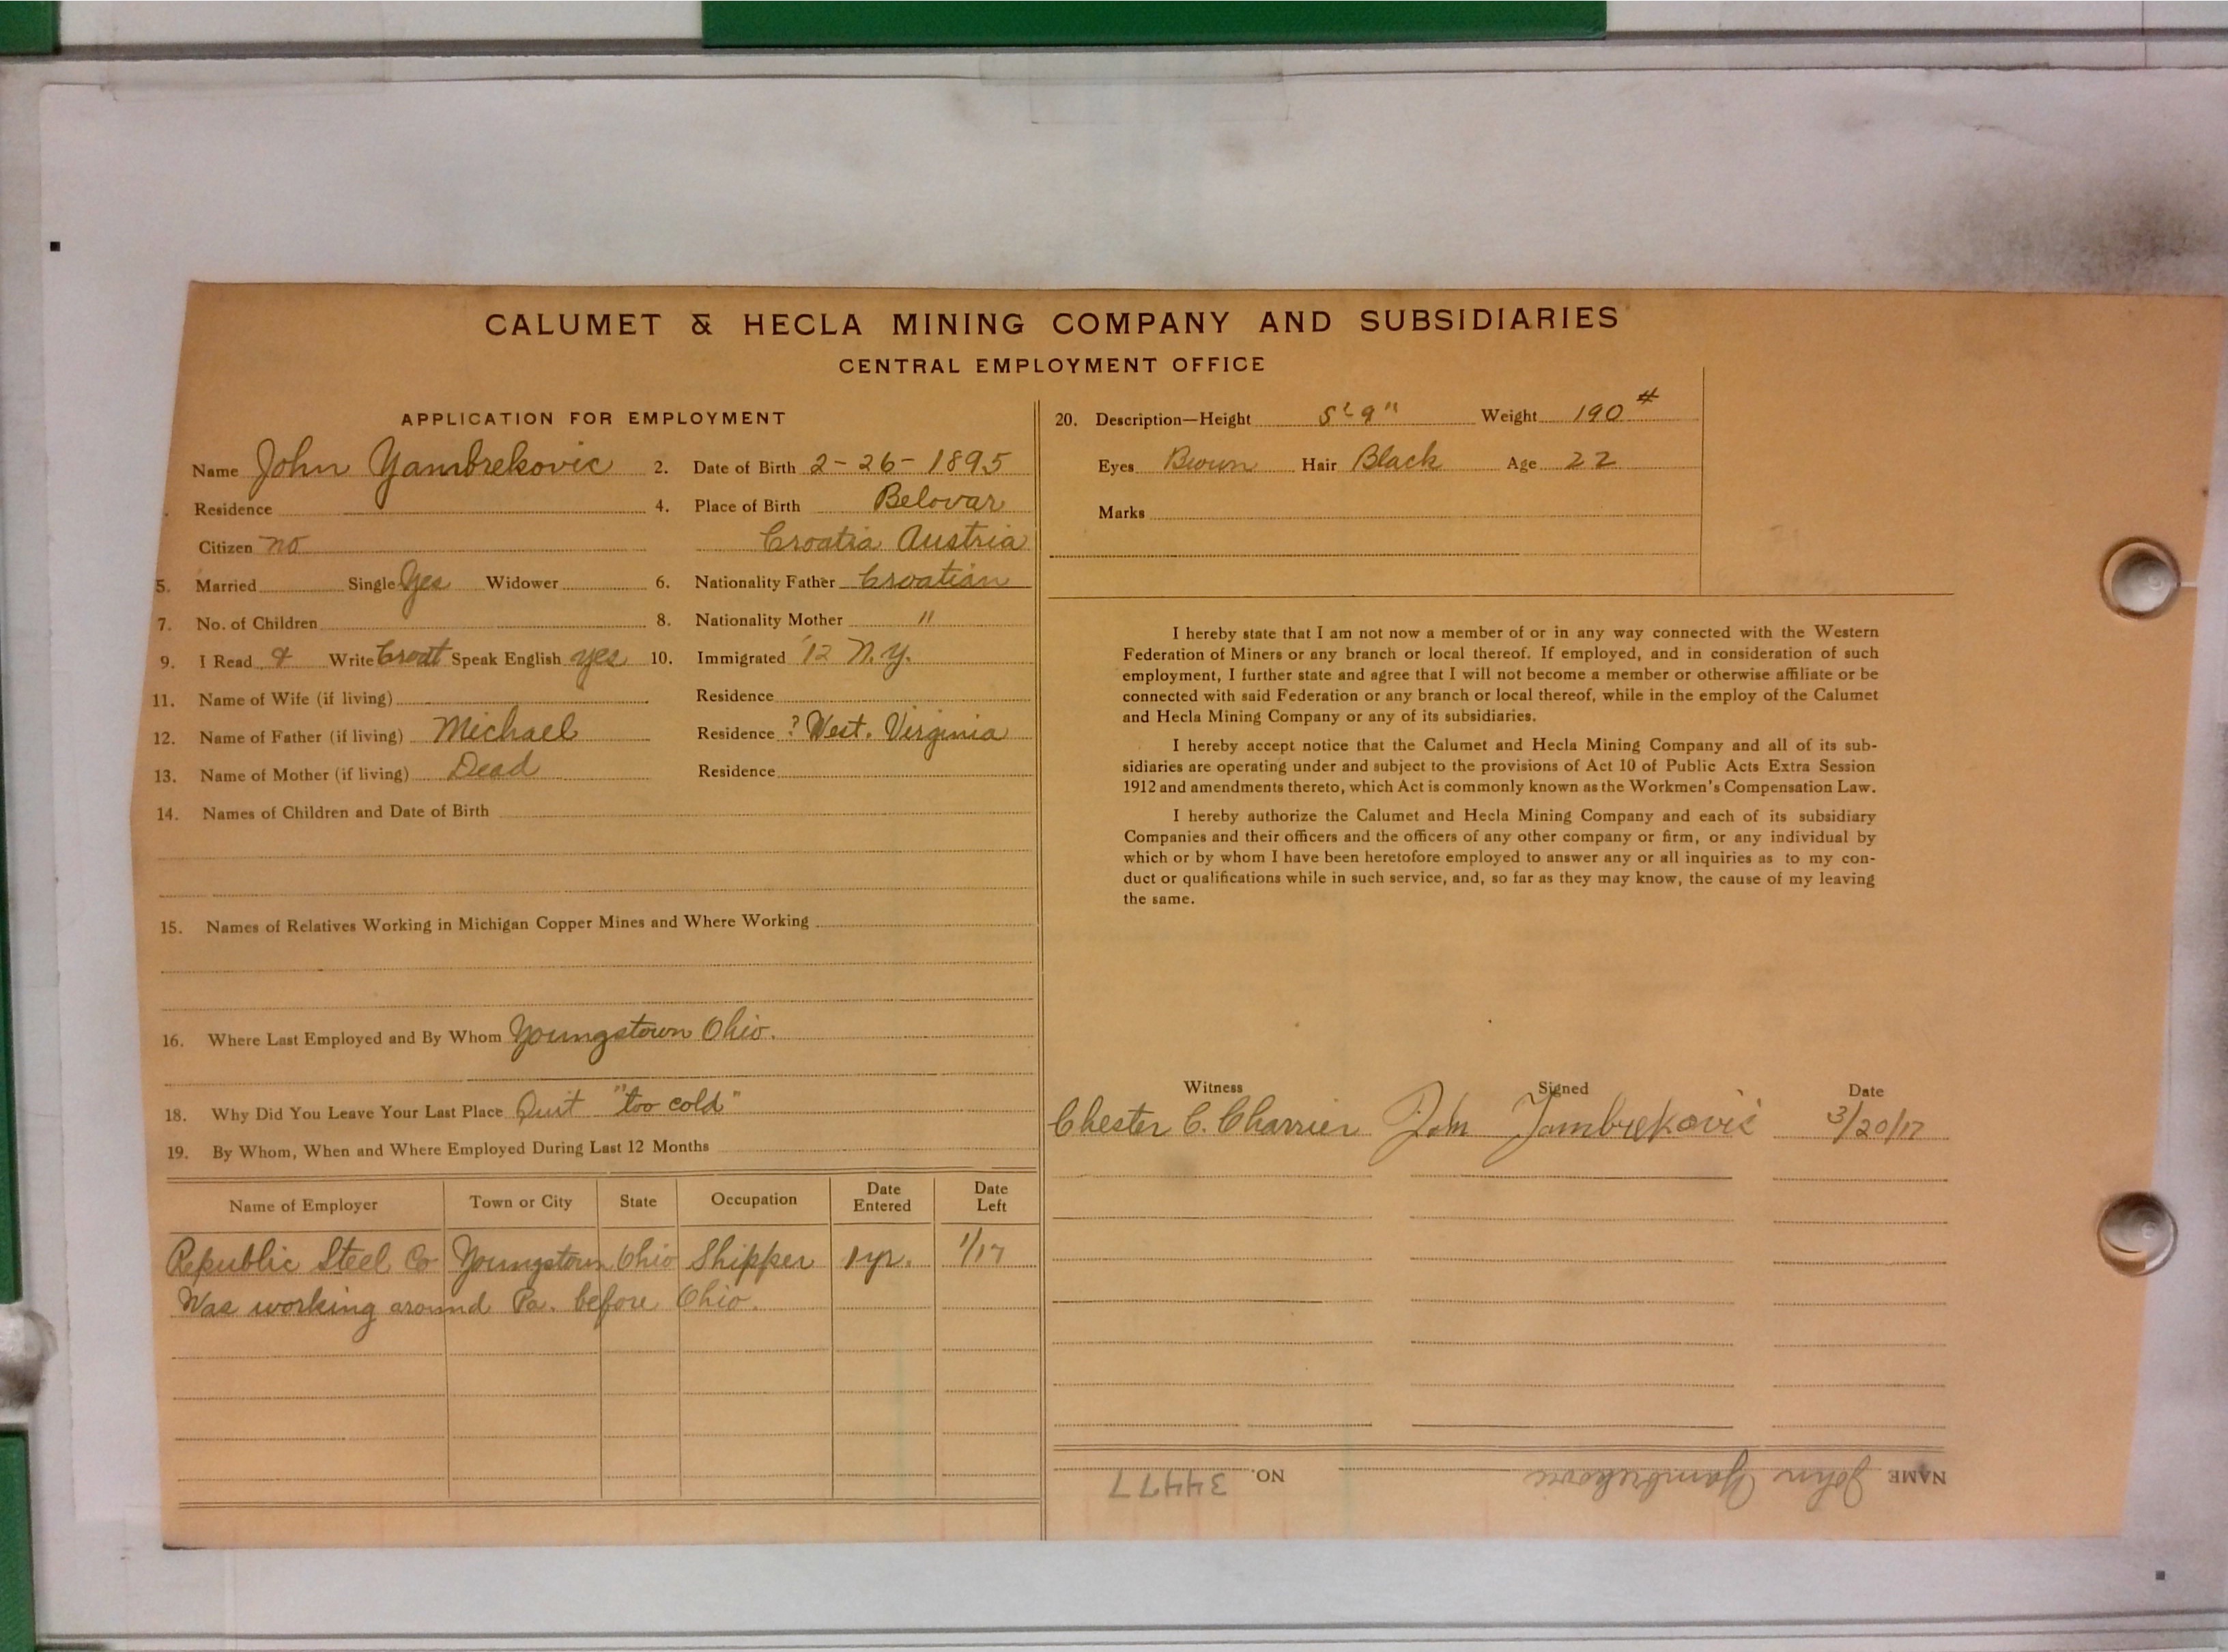 CALUMET & HECLA MINING COMPANY AND SUBSIDIARIES
CENTRAL EMPLOYMENT OFFICE
APPLICATION FOR EMPLOYMENT
Name John Yambrekovic 2. Date of Birth 2-26-1895
Residence 4. Place of Birth Belovar
Citizen no Croatia Austria
5. Married Single Yes Widower 6. Nationality Father Croatian
7. No. of Children 8. Nationality Mother "
9. I Read & Write Croat Speak English yes 10. Immigrated '12 N.Y.
11. Name of Wife (if living) Residence
12. Name of Father (if living) Michael Residence ? West. Virginia
13. Name of Mother (if living) Dead Residence
14. Names of Children and Date of Birth
15. Names of Relatives Working in Michigan Copper Mines and Where Working
16. Where Last Employed and By Whom Youngstown Ohio.
18. Why Did You Leave Your Last Place Quit "too cold"
19. By Whom, When and Where Employed During Last 12 Months
Name of Employer Town or City State Occupation Date Entered Date Left
Republic Steel Co Youngstown Ohio Shipper 1 yr. 1/17
Was working around Pa. before Ohio.
20. Description—Height 5' 9" Weight 190 #
Eyes Brown Hair Black Age 22
Marks
I hereby state that I am not now a member of or in any way connected with the Western
Federation of Miners or any branch or local thereof. If employed, and in consideration of such
employment, I further state and agree that I will not become a member or otherwise affiliate or be
connected with said Federation or any branch or local thereof, while in the employ of the Calumet
and Hecla Mining Company or any of its subsidiaries.
I hereby accept notice that the Calumet and Hecla Mining Company and all of its sub-
sidiaries are operating under and subject to the provisions of Act 10 of Public Acts Extra Session
1912 and amendments thereto, which Act is commonly known as the Workmen's Compensation Law.
I hereby authorize the Calumet and Hecla Mining Company and each of its subsidiary
Companies and their officers and the officers of any other company or firm, or any individual by
which or by whom I have been heretofore employed to answer any or all inquiries as to my con-
duct or qualifications while in such service, and, so far as they may know, the cause of my leaving
the same.
Witness Signed Date
Chester C. Charrier John Jambrekovic 3/20/17
NAME John Yambrekovic NO. 34477